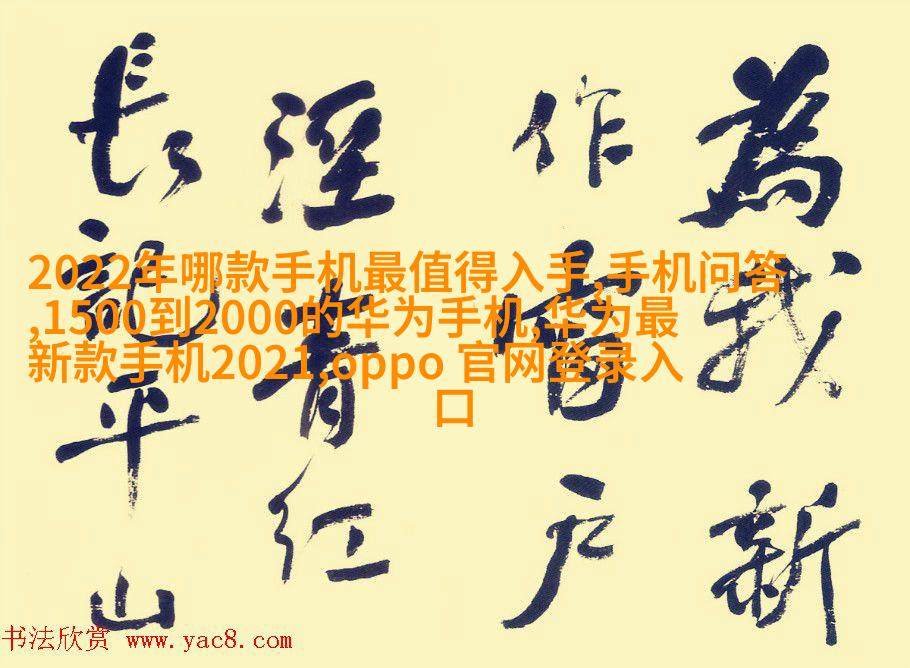 為我新
作窗户
溼青红
長記平山
2022年哪款手机最值得入手,手机问答
,1500到2000的华为手机,华为最
新款手机2021,oppo 官网登录入
口
书法欣赏 www.yac8.com